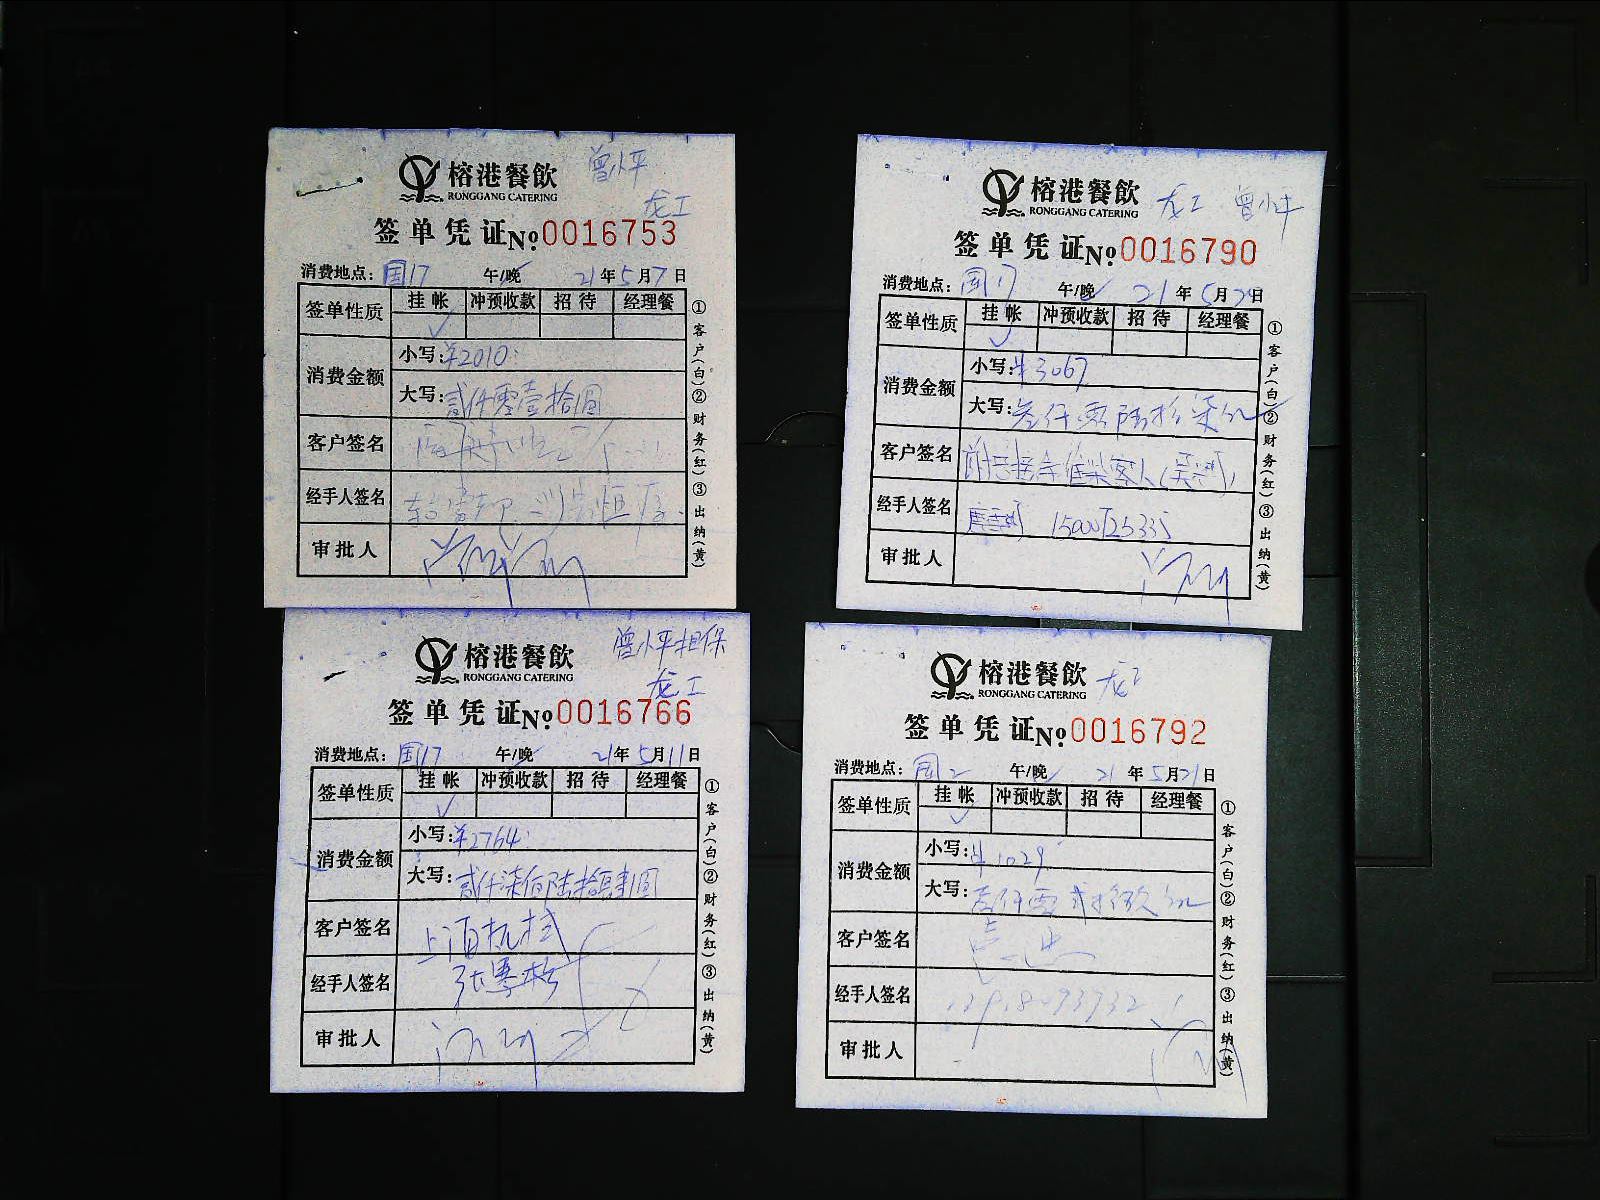 曾小平
榕港餐飲
RONGGANG CATERING
龙工
签单凭证 No 0016753
消费地点：国17 午/晚 21年5月7日
签单性质 挂帐 冲预收款 招待 经理餐
✓
消费金额
小写：¥2010
大写：贰仟零壹拾圆
客户签名
经手人签名
审批人
①客户(白)②财务(红)③出纳(黄)
榕港餐飲
RONGGANG CATERING
龙工 曾小平
签单凭证 No 0016790
消费地点：国17 午/晚 21年5月20日
签单性质 挂帐 冲预收款 招待 经理餐
✓
消费金额
小写：¥3067
大写：叁仟零陆拾柒元
客户签名
经手人签名
审批人
①客户(白)②财务(红)③出纳(黄)
曾小平担保
榕港餐飲
RONGGANG CATERING
龙工
签单凭证 No 0016766
消费地点：国17 午/晚 21年5月11日
签单性质 挂帐 冲预收款 招待 经理餐
✓
消费金额
小写：¥2764
大写：贰仟柒佰陆拾肆圆
客户签名
经手人签名
审批人
①客户(白)②财务(红)③出纳(黄)
榕港餐飲
RONGGANG CATERING
龙工
签单凭证 No 0016792
消费地点：国2 午/晚 21年5月21日
签单性质 挂帐 冲预收款 招待 经理餐
✓
消费金额
小写：¥1029
大写：壹仟零贰拾玖元
客户签名
经手人签名
审批人
①客户(白)②财务(红)③出纳(黄)